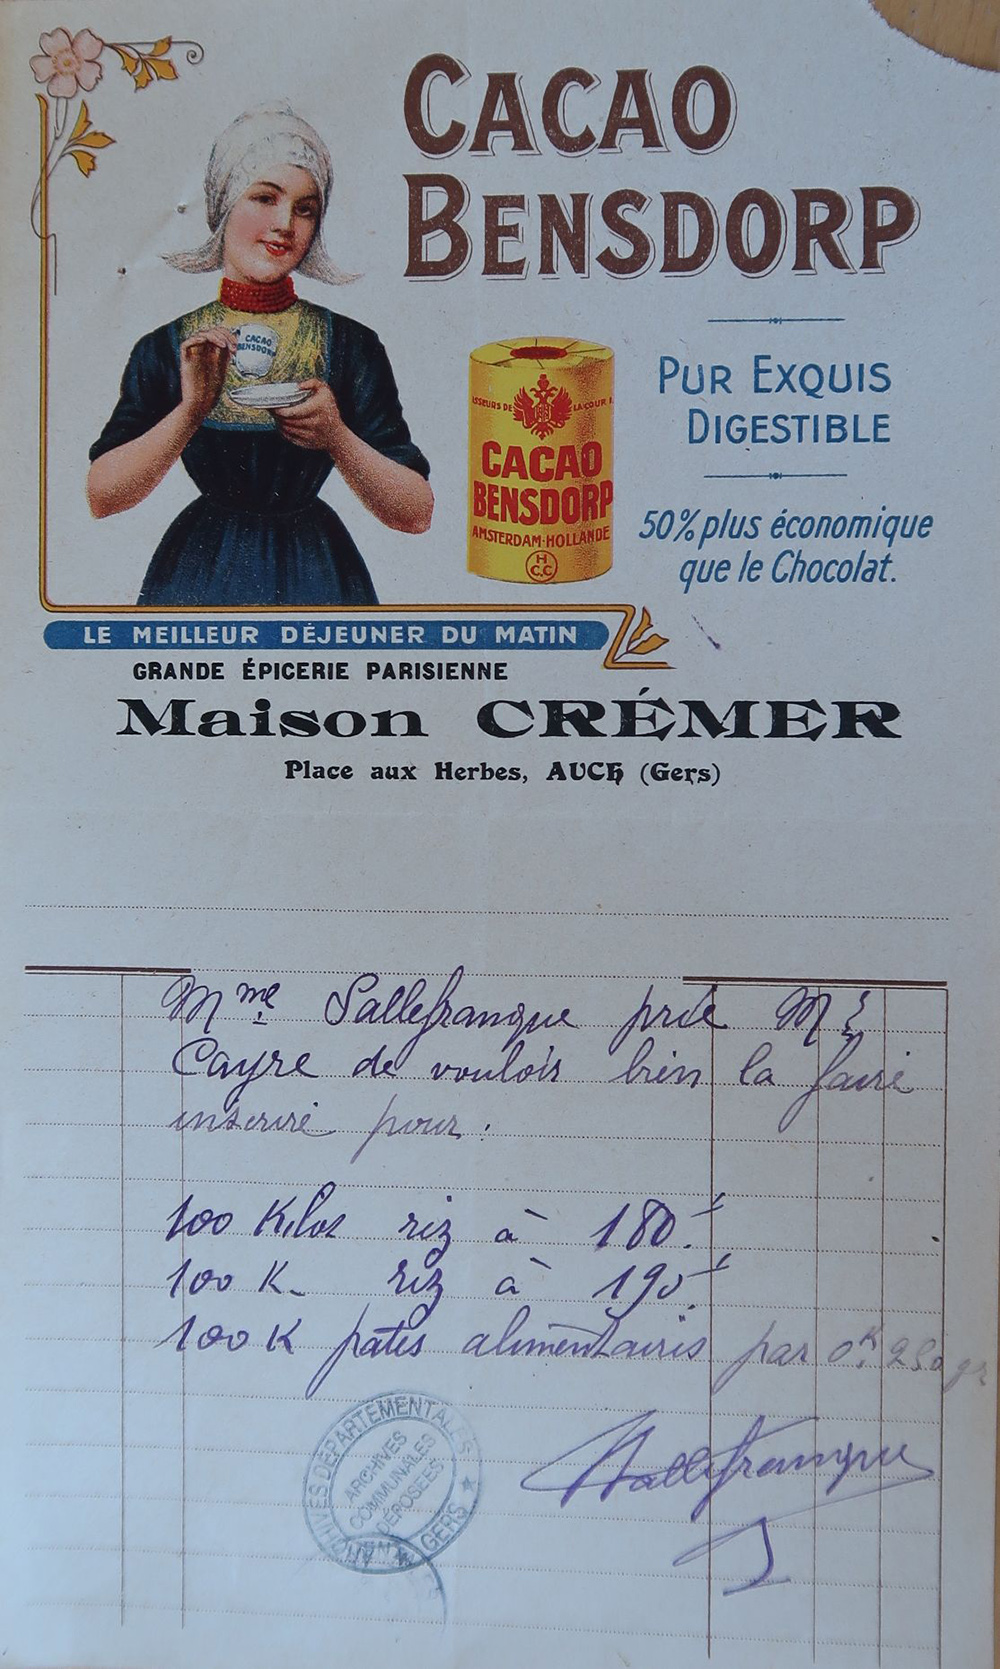 CACAO
BENSDORP
CACAO
BENSDORP
PUR EXQUIS
DIGESTIBLE
CACAO
BENSDORP
AMSTERDAM-HOLLANDE
H
C.C
50% plus économique
que le Chocolat.
LE MEILLEUR DÉJEUNER DU MATIN
GRANDE ÉPICERIE PARISIENNE
Maison CRÉMER
Place aux Herbes, AUCH (Gers)
Mme Sallefranque prie Mr
Cayre de vouloir bien la faire
inscrire pour :
100 Kilos riz à 180 f
100 K. riz à 190 f
100 K pates alimentaires par 0K 250 gr
Sallefranque
ARCHIVES DÉPARTEMENTALES
ARCHIVES
COMMUNALES
DÉPOSÉES
GERS